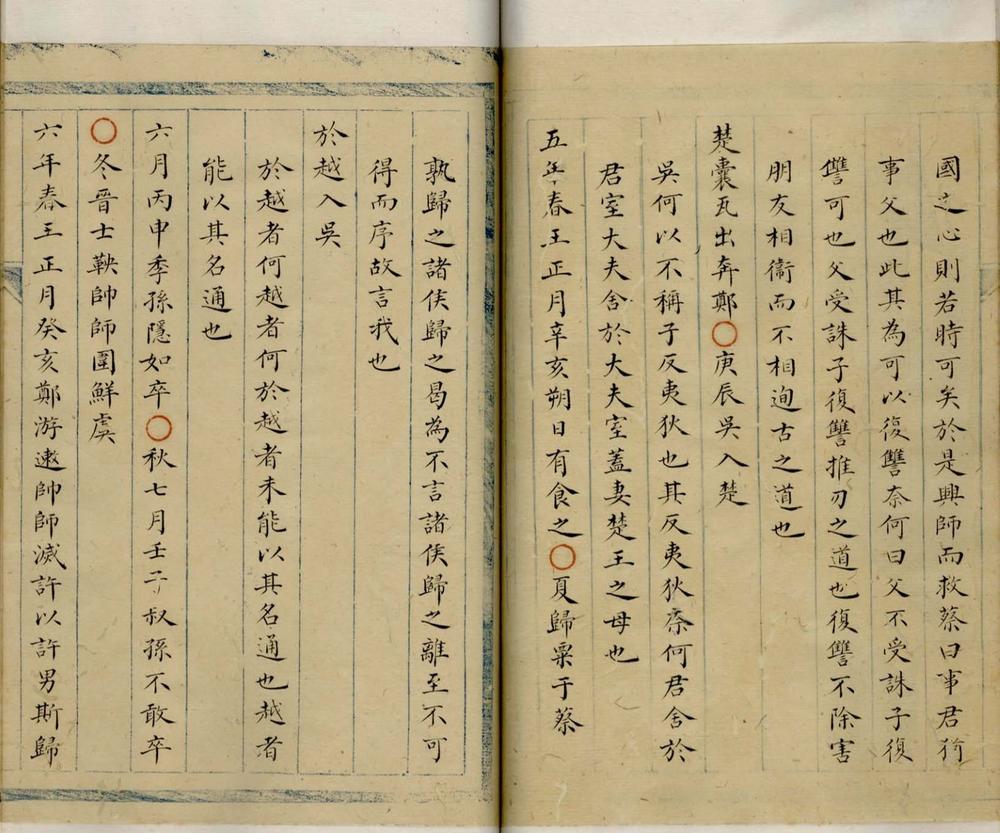 國之心則若時可矣於是興師而救蔡曰事君猶
事父也此其為可以復讐奈何曰父不受誅子復
讐可也父受誅子復讐推刃之道也復讐不除害
朋友相衞而不相迿古之道也
楚囊瓦出奔鄭○庚辰吳入楚
吳何以不稱子反夷狄也其反夷狄奈何君舍於
君室大夫舍於大夫室蓋妻楚王之母也
五年春王正月辛亥朔日有食之○夏歸粟于蔡
孰歸之諸侯歸之曷為不言諸侯歸之離至不可
得而序故言我也
於越入吳
於越者何越者何於越者未能以其名通也越者
能以其名通也
六月丙申季孫隱如卒○秋七月壬子叔孫不敢卒
○冬晉士鞅帥師圍鮮虞
六年春王正月癸亥鄭游遬帥師滅許以許男斯歸